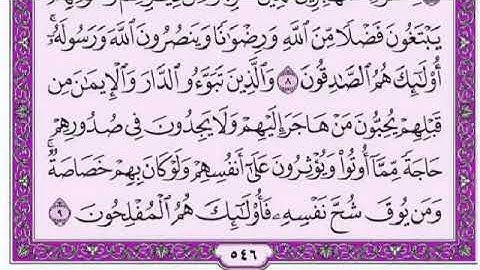 يَبْتَغُونَ فَضْلًا مِّنَ ٱللَّهِ وَرِضْوَٰنًا وَيَنصُرُونَ ٱللَّهَ وَرَسُولَهُۥٓ ۚ
أُو۟لَٰٓئِكَ هُمُ ٱلصَّٰدِقُونَ ٨ وَٱلَّذِينَ تَبَوَّءُو ٱلدَّارَ وَٱلْإِيمَٰنَ مِن
قَبْلِهِمْ يُحِبُّونَ مَنْ هَاجَرَ إِلَيْهِمْ وَلَا يَجِدُونَ فِى صُدُورِهِمْ
حَاجَةً مِّمَّآ أُوتُوا۟ وَيُؤْثِرُونَ عَلَىٰٓ أَنفُسِهِمْ وَلَوْ كَانَ بِهِمْ خَصَاصَةٌ ۚ
وَمَن يُوقَ شُحَّ نَفْسِهِۦ فَأُو۟لَٰٓئِكَ هُمُ ٱلْمُفْلِحُونَ ٩
٥٤٦